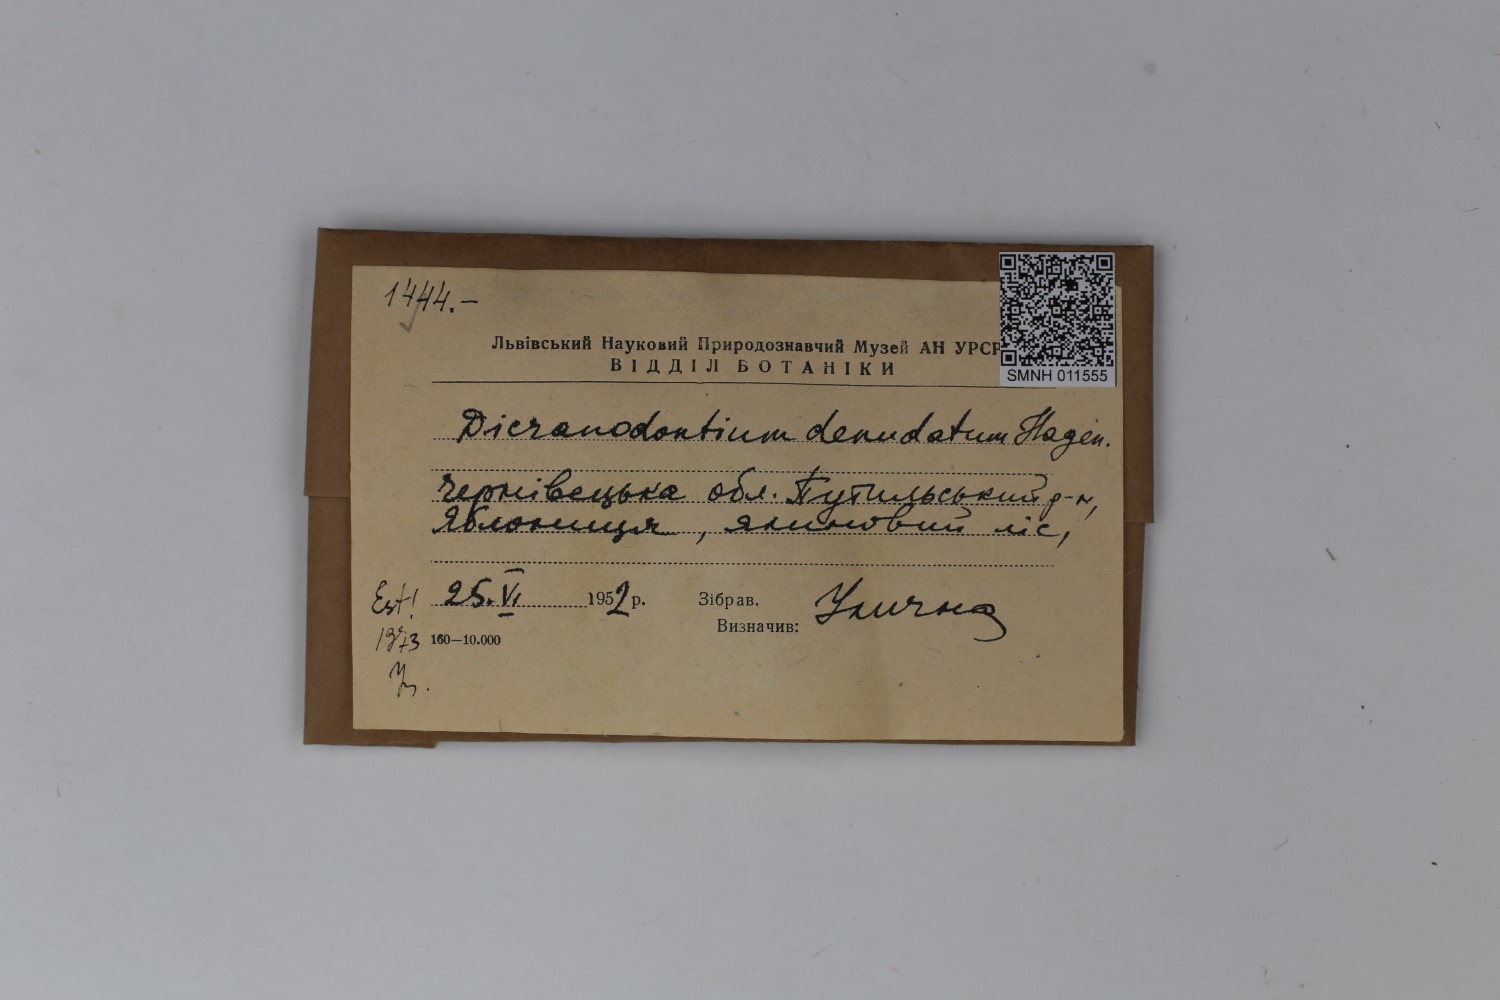 1444.-
Львівський Науковий Природознавчий Музей АН УРСР
ВІДДІЛ БОТАНІКИ
SMNH 011555
Dicranodontium denudatum Hagen.
Чернівецька обл. Путильський р-н,
Яблониця, ялиновий ліс,
Est! 25.VI 1952 р. Зібрав. Улична
Визначив:
1973 160—10.000